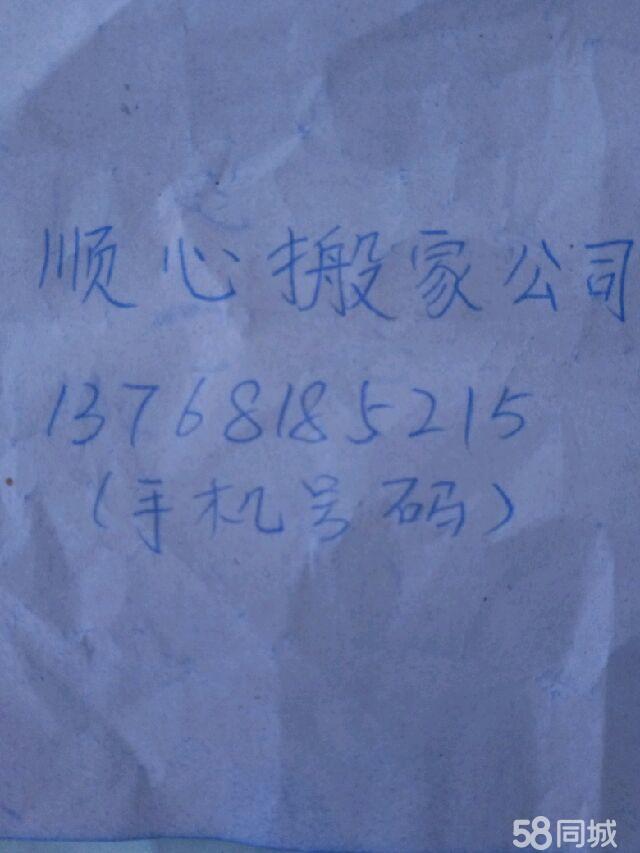 顺心搬家公司
13768185215
(手机号码)
58同城